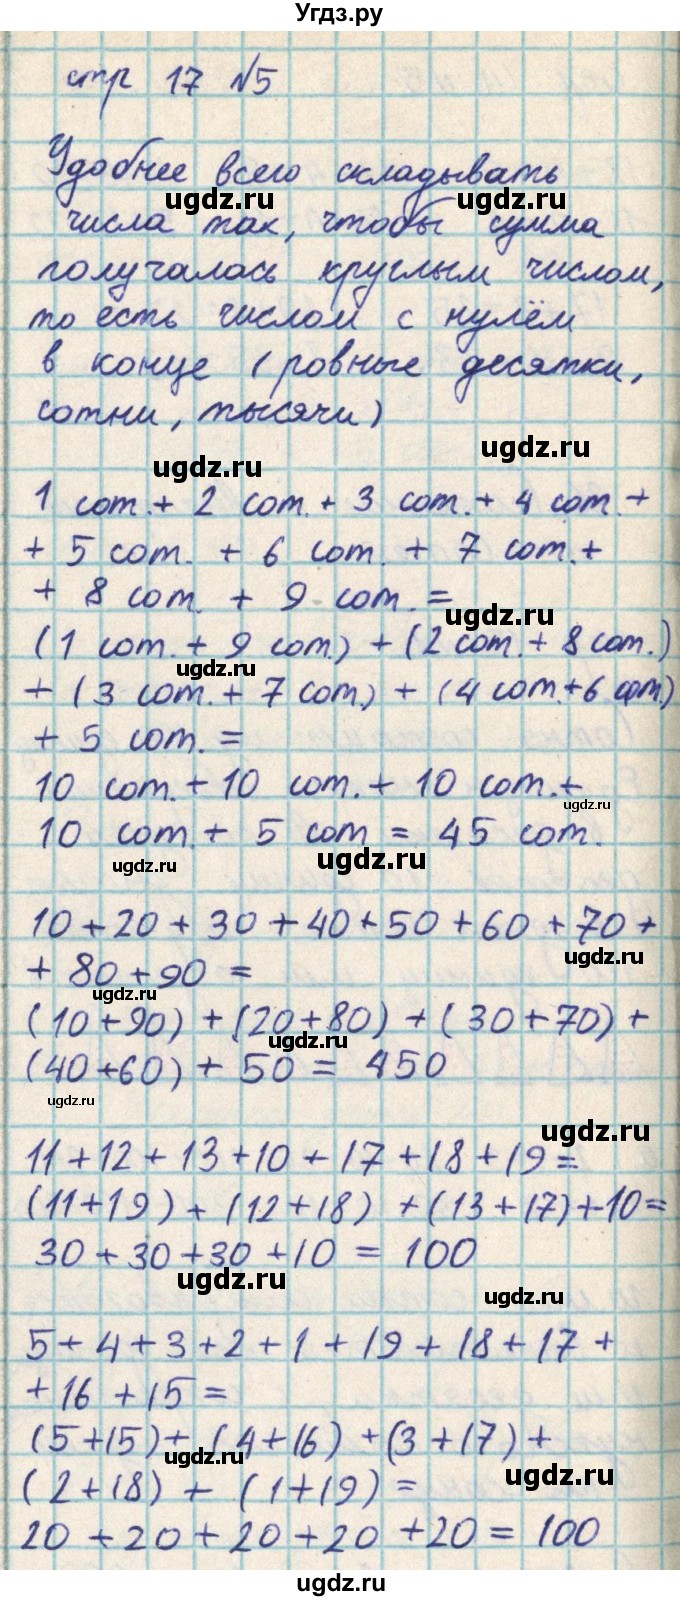 Угдз.ру
стр 17 №5
Удобнее всего складывать
числа так, чтобы сумма
получалась круглым числом,
то есть числом с нулём
в конце (ровные десятки,
сотни, тысячи)
1 сот. + 2 сот. + 3 сот. + 4 сот. +
+ 5 сот. + 6 сот. + 7 сот. +
+ 8 сот. + 9 сот. =
(1 сот. + 9 сот.) + (2 сот. + 8 сот.)
+ (3 сот. + 7 сот) + (4 сот. + 6 сот)
+ 5 сот. =
10 сот. + 10 сот. + 10 сот. +
10 сот. + 5 сот = 45 сот.
10 + 20 + 30 + 40 + 50 + 60 + 70 +
+ 80 + 90 =
(10 + 90) + (20 + 80) + (30 + 70) +
(40 + 60) + 50 = 450
11 + 12 + 13 + 10 + 17 + 18 + 19 =
(11 + 19) + (12 + 18) + (13 + 17) + 10 =
30 + 30 + 30 + 10 = 100
5 + 4 + 3 + 2 + 1 + 19 + 18 + 17 +
+ 16 + 15 =
(5 + 15) + (4 + 16) + (3 + 17) +
(2 + 18) + (1 + 19) =
20 + 20 + 20 + 20 + 20 = 100
ugdz.ru